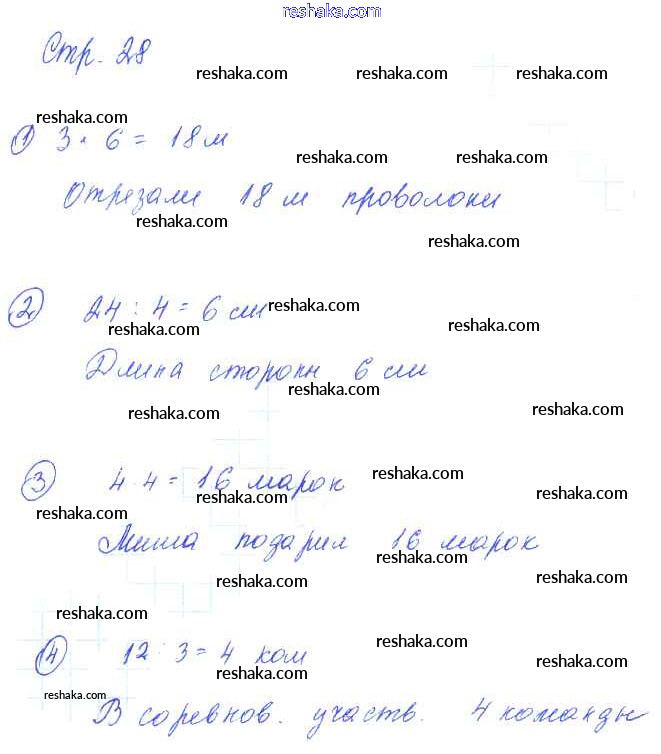 reshaka.com
Стр. 28
reshaka.com reshaka.com reshaka.com
reshaka.com
1 3 · 6 = 18 м
reshaka.com reshaka.com
Отрезали 18 м проволоки
reshaka.com
reshaka.com
2 24 : 4 = 6 см
reshaka.com
reshaka.com reshaka.com
Длина стороны 6 см
reshaka.com
reshaka.com reshaka.com
3 4 · 4 = 16 марок
reshaka.com
reshaka.com reshaka.com
reshaka.com
Миша подарил 16 марок
reshaka.com
reshaka.com reshaka.com
reshaka.com
4 12 : 3 = 4 ком
reshaka.com
reshaka.com reshaka.com
reshaka.com
В соревнов. участв. 4 команды